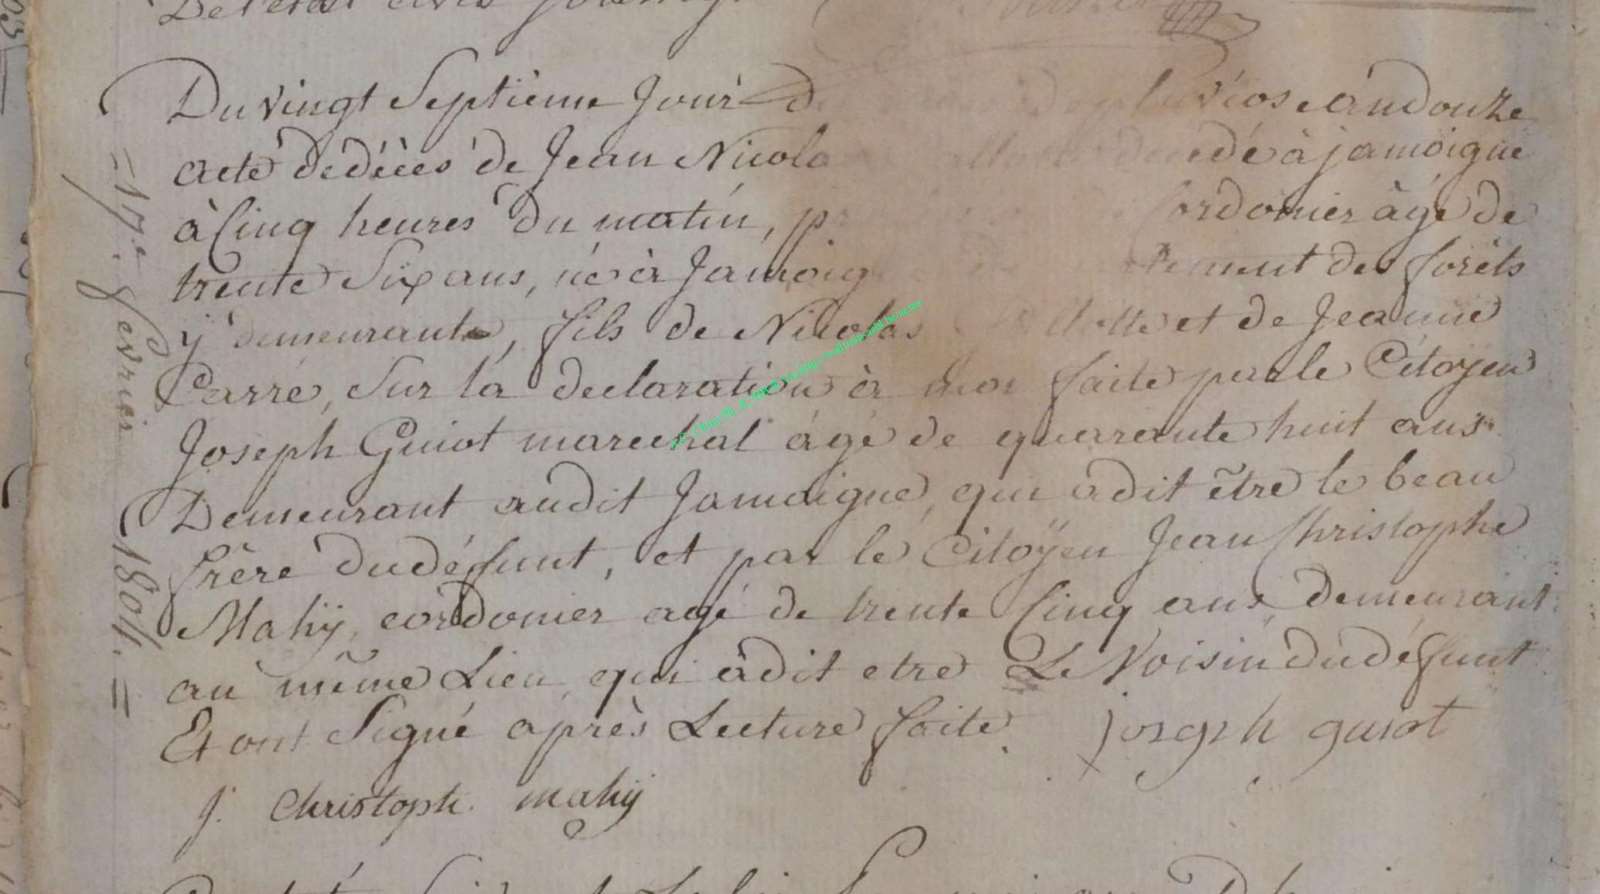 Del'état civil
Du vingt Septième Jour d pluviose an douze
acte dedécès de Jean Nicola décédé à jamoigne
à Cinq heures du matin, cordonier âgé de
trente Six ans, né à Jamoig tement des forêts
ÿ demeurante, fils de Nicolas et de Jeanne
Carré, Sur la declaration à moi faite parle Citoÿen
Joseph Guiot marechal âgé de quarante huit ans
Demeurant audit Jamoigne, qui adit être le beau
frère dudéfunt, et par le Citoÿen Jean Christophe
Mahÿ, cordonier agé de trente Cinq ans demeurant
au même Lieu, qui àdit etre Le Voisin dudéfunt
Et ont Signé après Lecture faite. joseph guiot
j. christoph. mahÿ
=17.e fevrier 1804.=